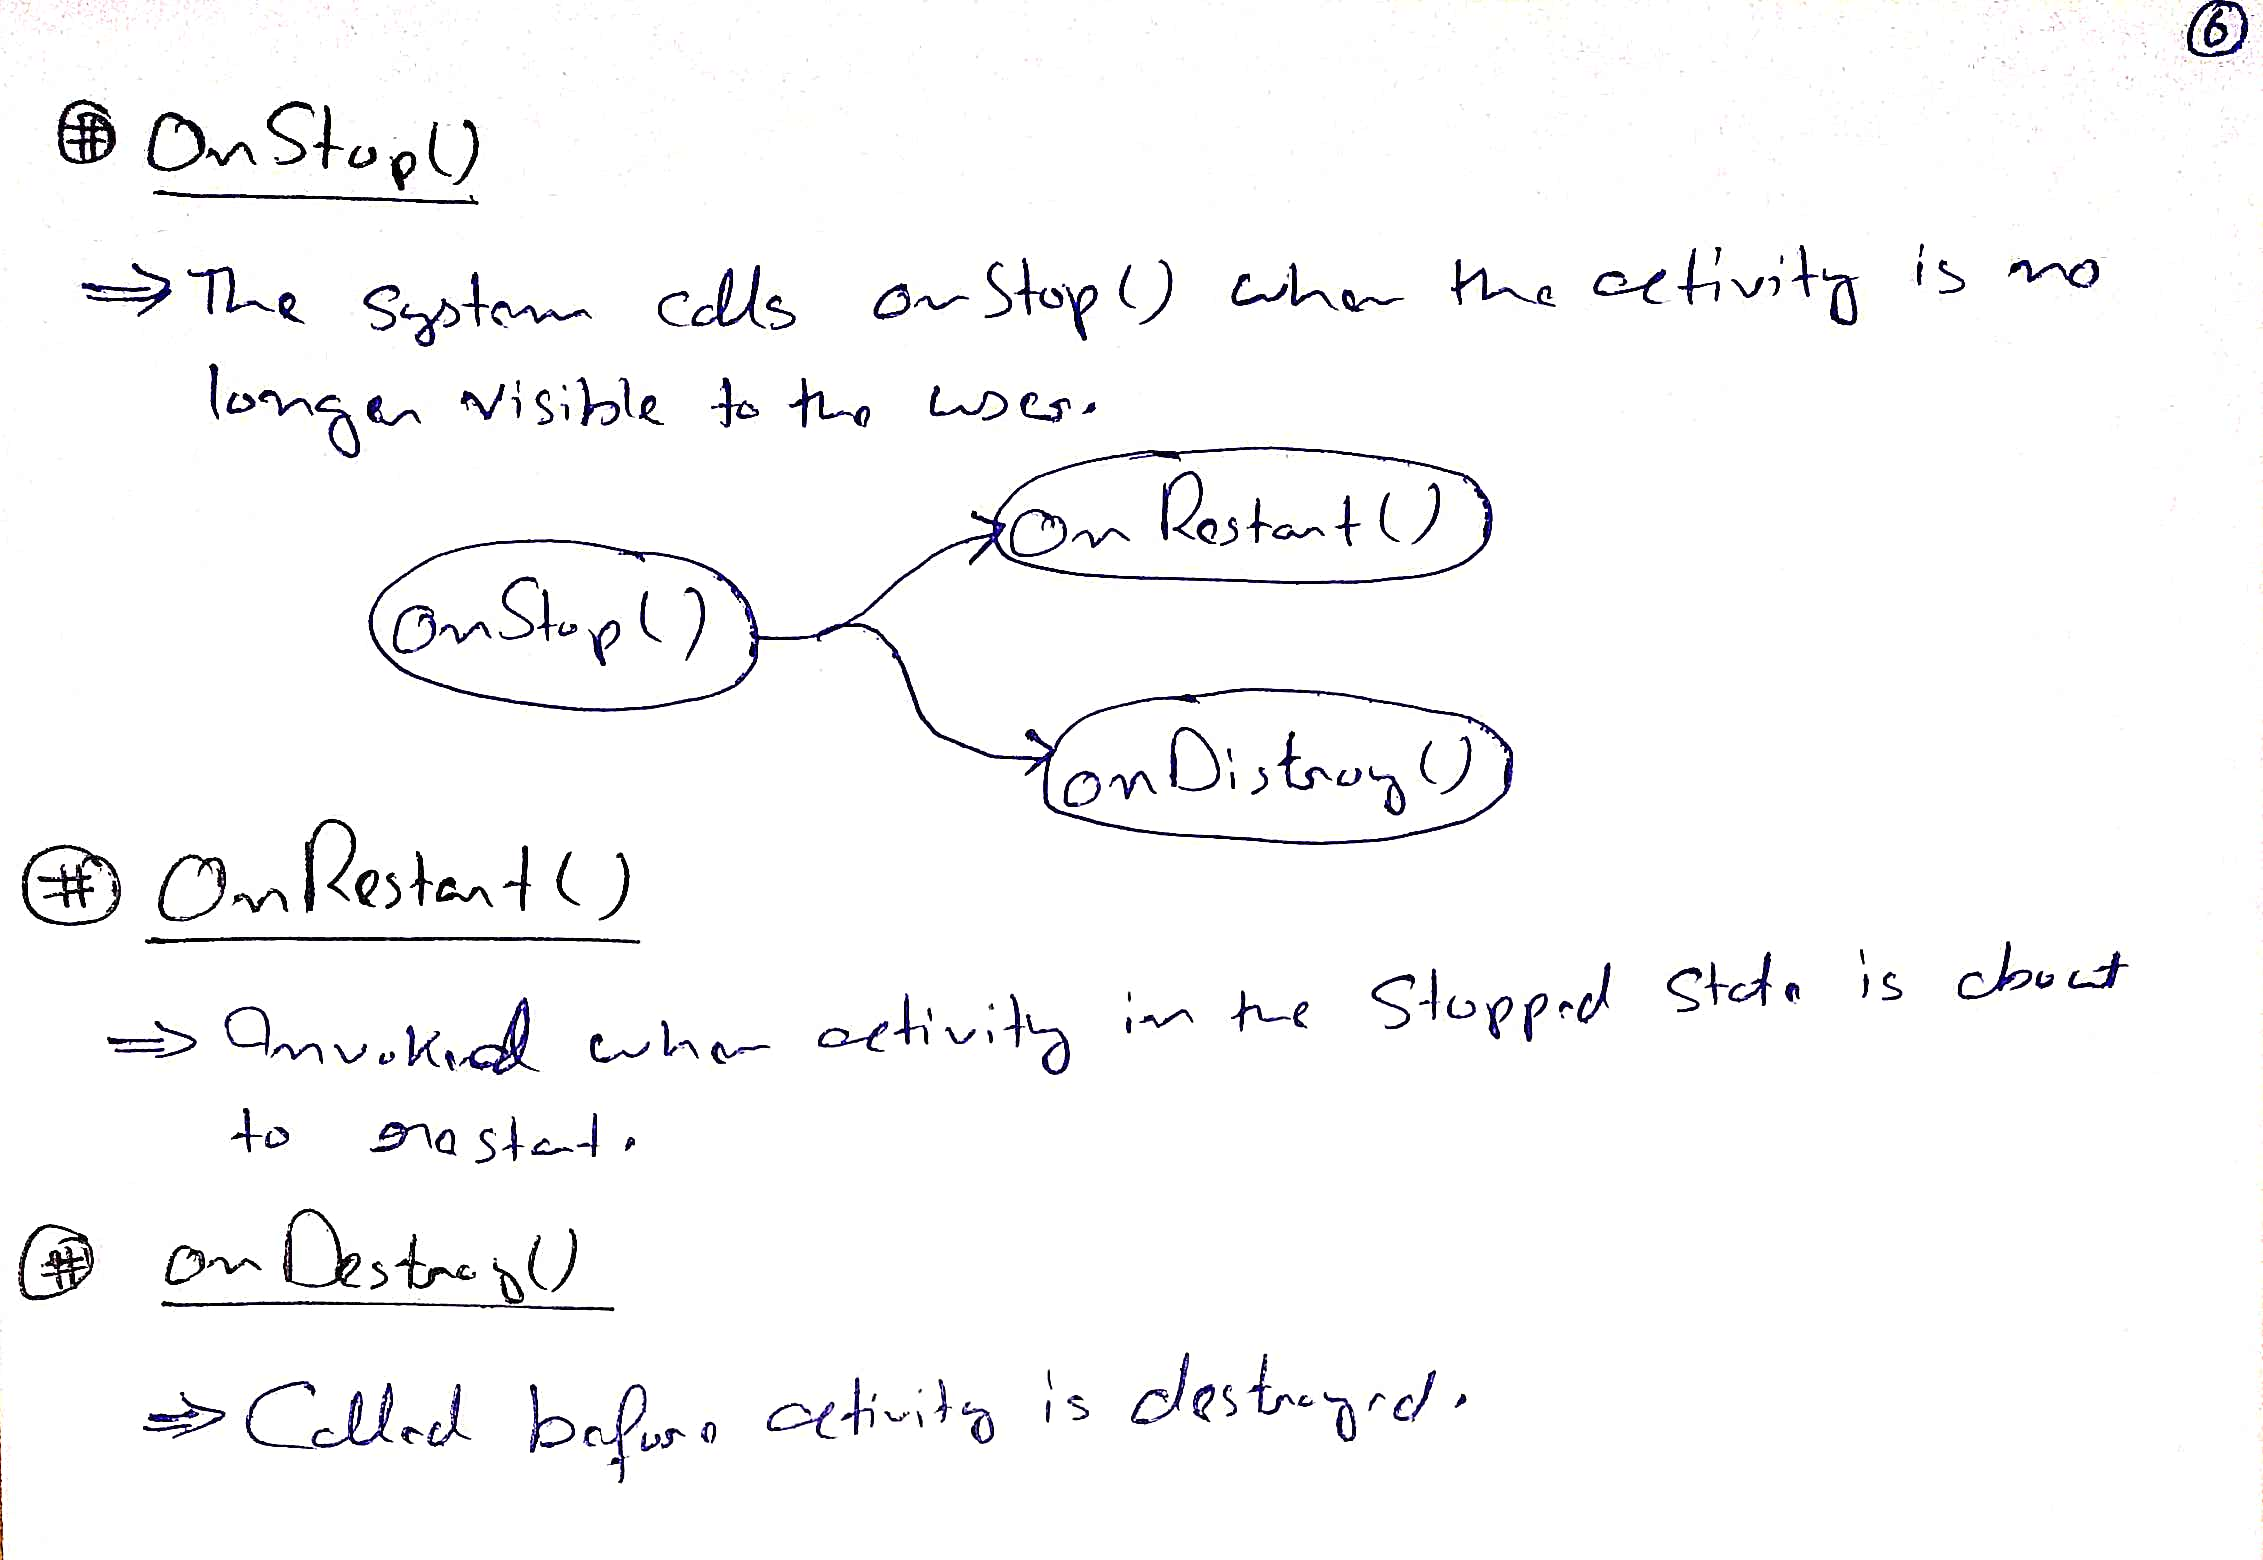 6
# OnStop()
⇒ The system calls onStop() when the activity is no
longer visible to the user.
onRestart()
onStop()
onDistroy()
# OnRestart()
⇒ Invoked when activity in the Stopped state is about
to restart.
# onDestroy()
⇒ Called before activity is destroyed.